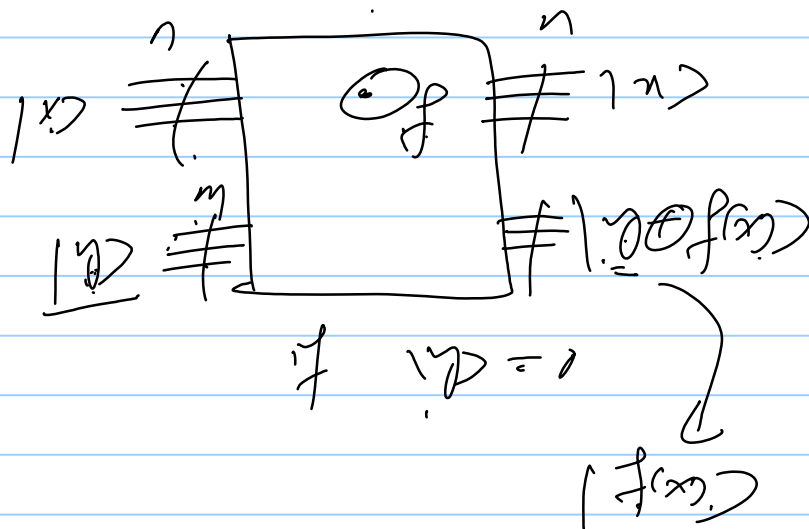 n n
|x⟩ O_f |x⟩
m
|y⟩ |y⊕f(x)⟩
if |y⟩ = 0
|f(x)⟩